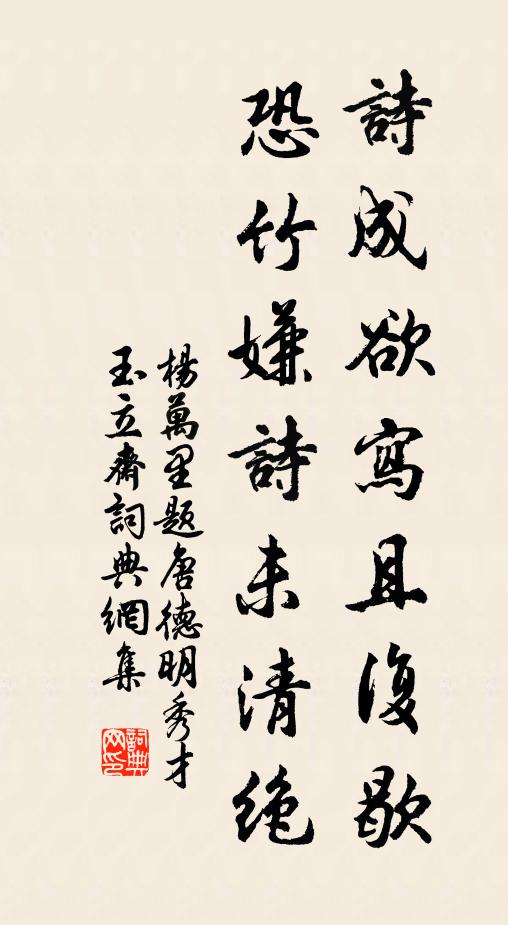 詩成欲寫且復歇
恐竹嫌詩未清絕
楊萬里題唐德明秀才
玉立齋詞典網集
詞典网印